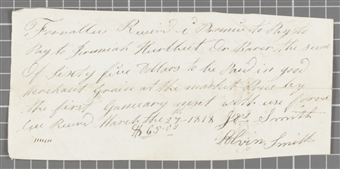 For vallue Receivd I Promis to Pay to
Pay to Jeremiah Hurlbut Or Barer the sum
Of Sixty five Dollars to be Paid in good
merchant Grain at the market Price by
the first January next with use
Receivd March the 27 1818 Smith
$65.00 Alvin Smith